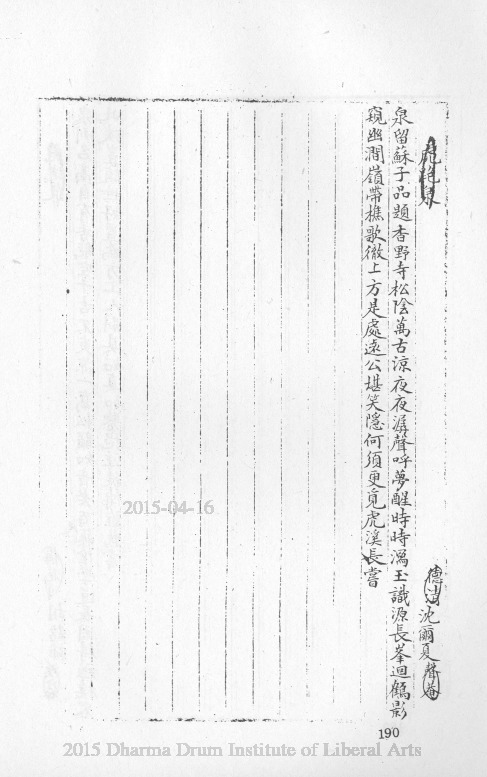 虎跑泉
德清沈爾夏聲菴
泉留蘇子品題香野寺松陰萬古涼夜夜潺聲呼夢醒時時瀉玉識源長峯迴鶴影
窺幽澗嶺帶樵歌徹上方是處遠公堪笑隱何須更覓虎溪長嘗
190
2015-04-16
2015 Dharma Drum Institute of Liberal Arts